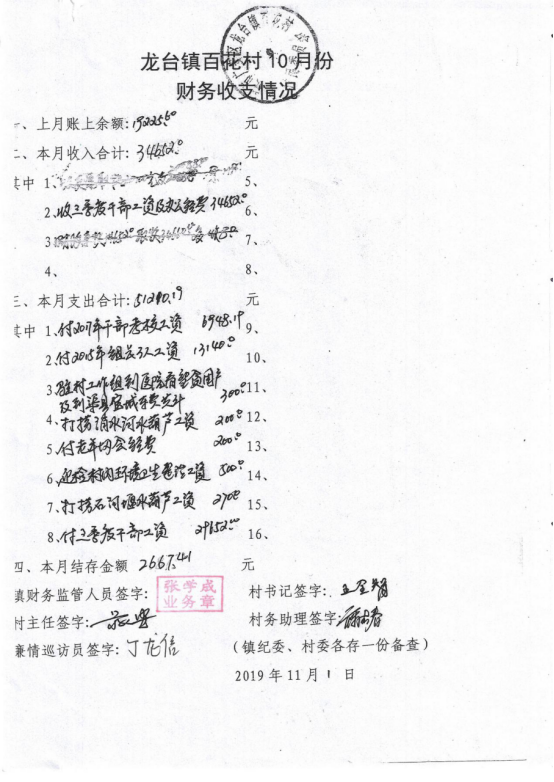 龙台镇百花村10月份
财务收支情况
一、上月账上余额:19225.60 元
二、本月收入合计:34652.00 元
其中 1、 5、
2、收三季度干部工资及办公经费34652.00 6、
3、 7、
4、 8、
三、本月支出合计:51210.19 元
其中 1、付2017年干部考核工资 6948.19 9、
2、付2015年组长误工工资 13140.00 10、
3、驻村工作组到医院看望贫困户 300.00 11、
及到渠县
4、打捞清水河水葫芦工资 200.00 12、
5、付老年协会经费 200.00 13、
6、村内环境卫生工资 500.00 14、
7、打捞石河堰水葫芦工资 270.00 15、
8、付三季度干部工资 29652.00 16、
四、本月结存金额 2667.41 元
镇财务监管人员签字: 张学成 业务章 村书记签字:
村主任签字: 村务助理签字:
廉情巡访员签字:丁龙信 (镇纪委、村委各存一份备查)
2019年11月1日